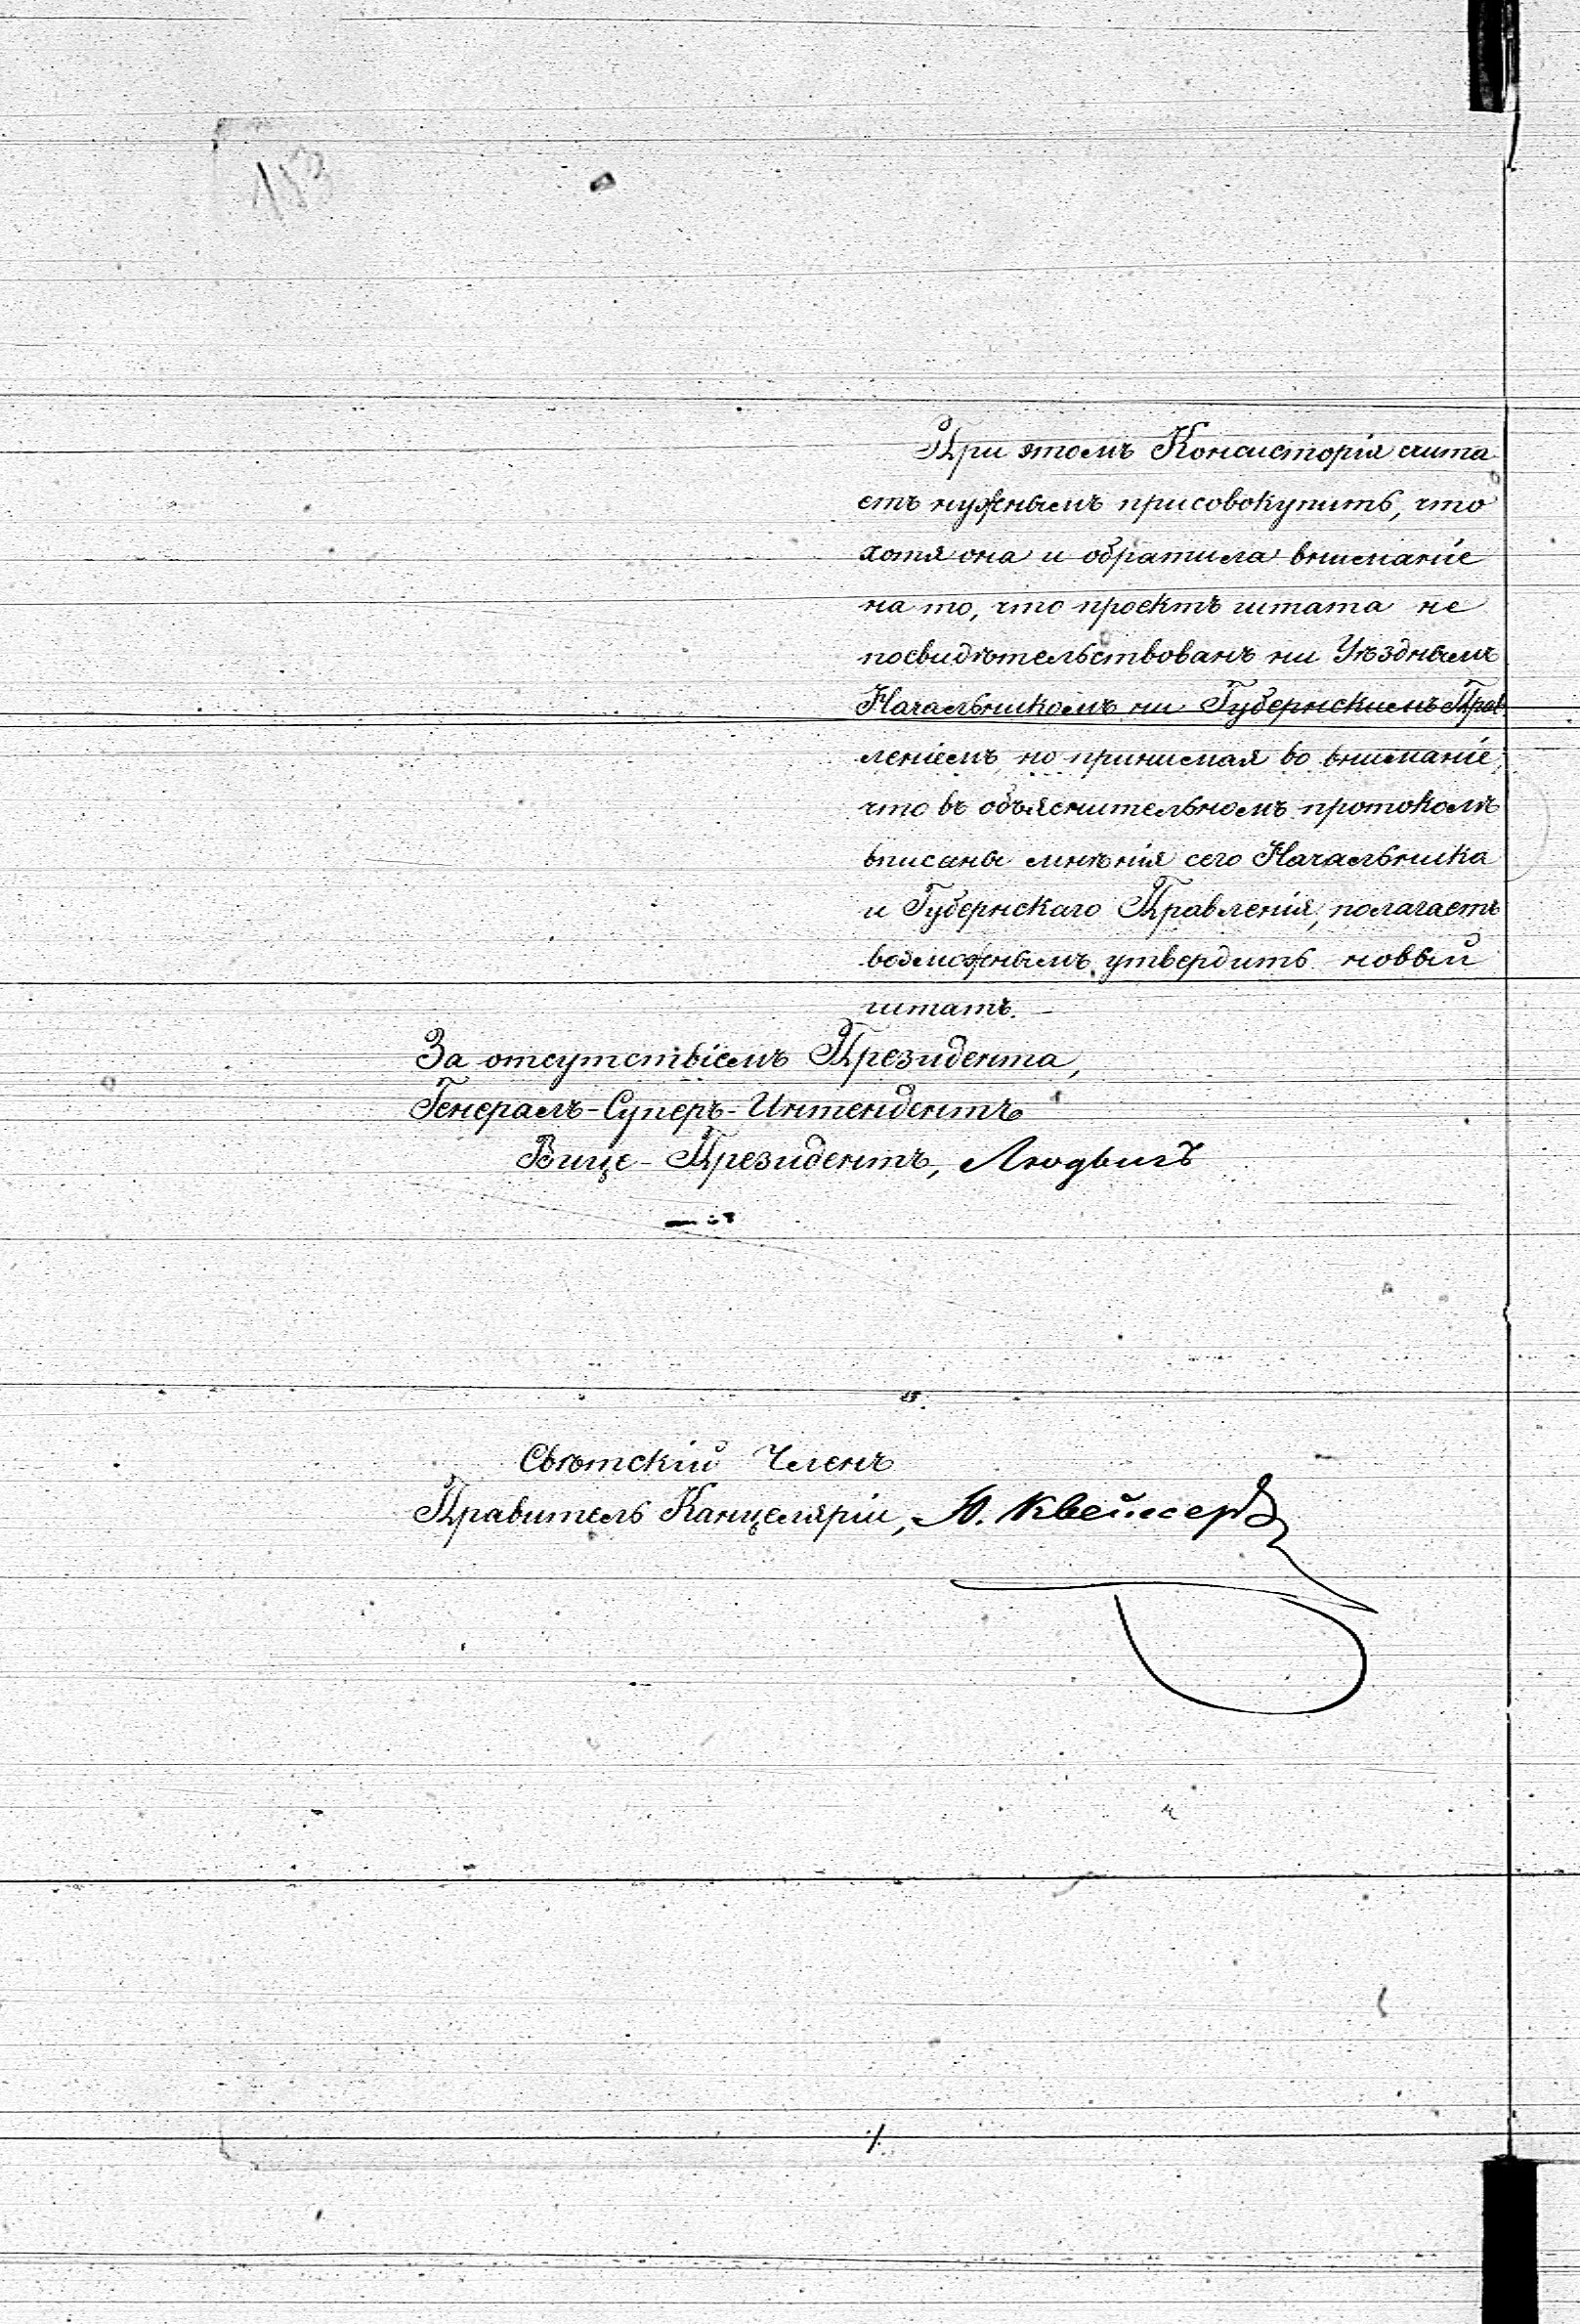 153
При этомъ Консисторія счита
етъ нужнымъ присовокупить, что
хотя она и обратила вниманіе
на то, что проектъ штата не
посвидѣтельствованъ ни Уѣзднымъ
Начальникомъ ни Губернскимъ Прав
леніемъ, но принимая во вниманіе,
что въ объяснительномъ протоколѣ
вписаны мнѣнія сего Начальника
и Губернскаго Правленія, полагаетъ
возможнымъ утвердить новый
штатъ. –
За отсутствіемъ Президента,
Генералъ-Суперъ-Интендентъ
Вице-Президентъ, Людвигъ
Свѣтскій Членъ
Правитель Канцеляріи,